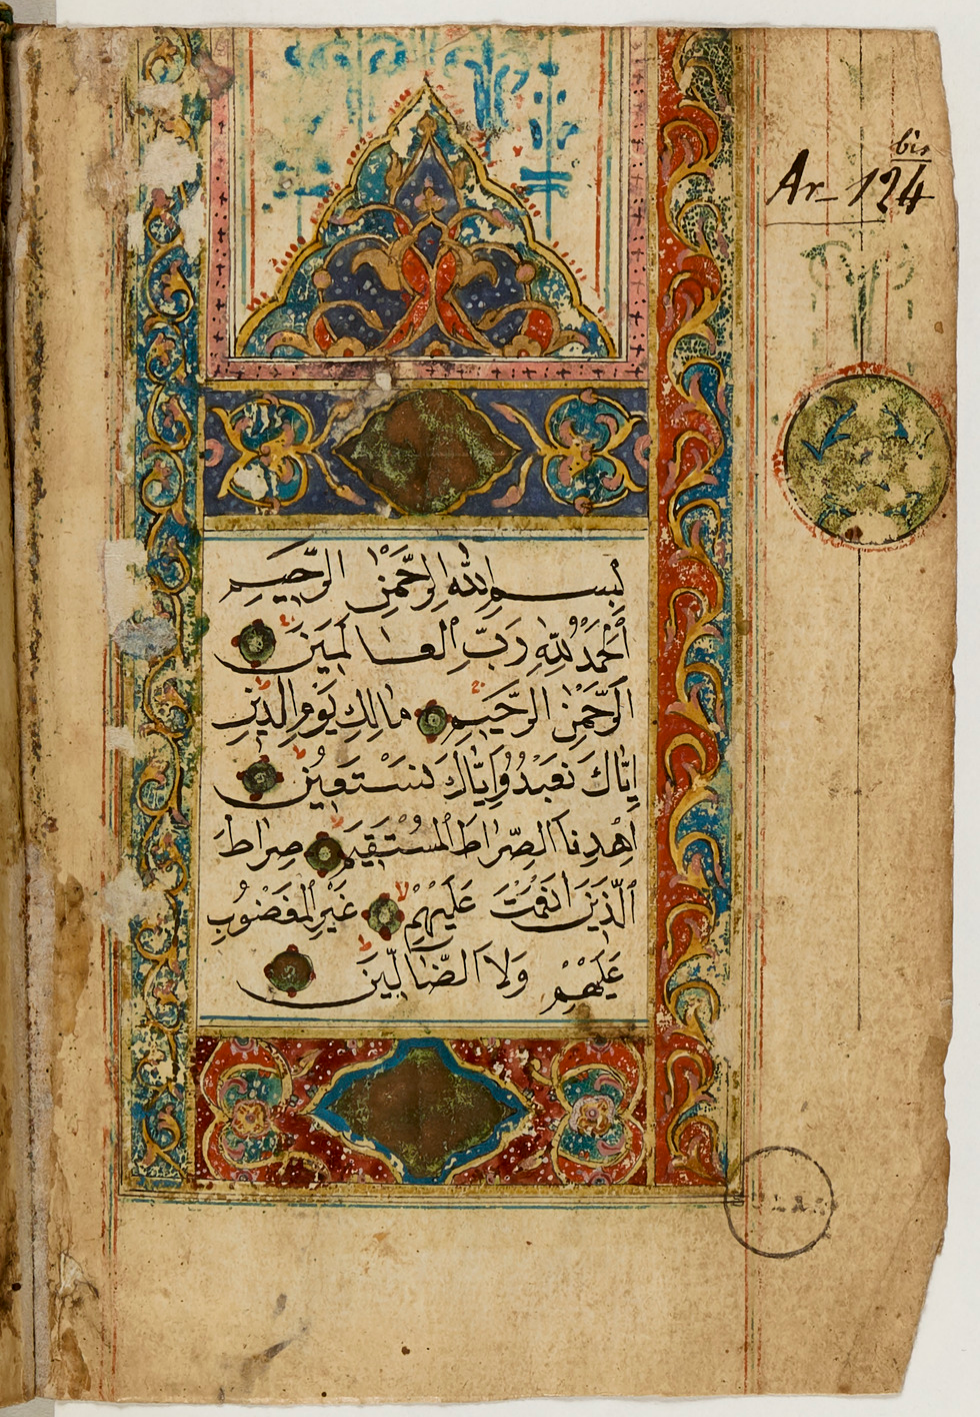 bis
Ar_ 124
بِسْمِ اللهِ الرَّحْمٰنِ الرَّحِيمِ
اَلْحَمْدُ لِلّٰهِ رَبِّ الْعَالَمِينَ
اَلرَّحْمٰنِ الرَّحِيمِ مَالِكِ يَوْمِ الدِّينِ
اِيَّاكَ نَعْبُدُ وَاِيَّاكَ نَسْتَعِينُ
اِهْدِنَا الصِّرَاطَ الْمُسْتَقِيمَ صِرَاطَ
الَّذِينَ اَنْعَمْتَ عَلَيْهِمْ غَيْرِ الْمَغْضُوبِ
عَلَيْهِمْ وَلَا الضَّالِّينَ